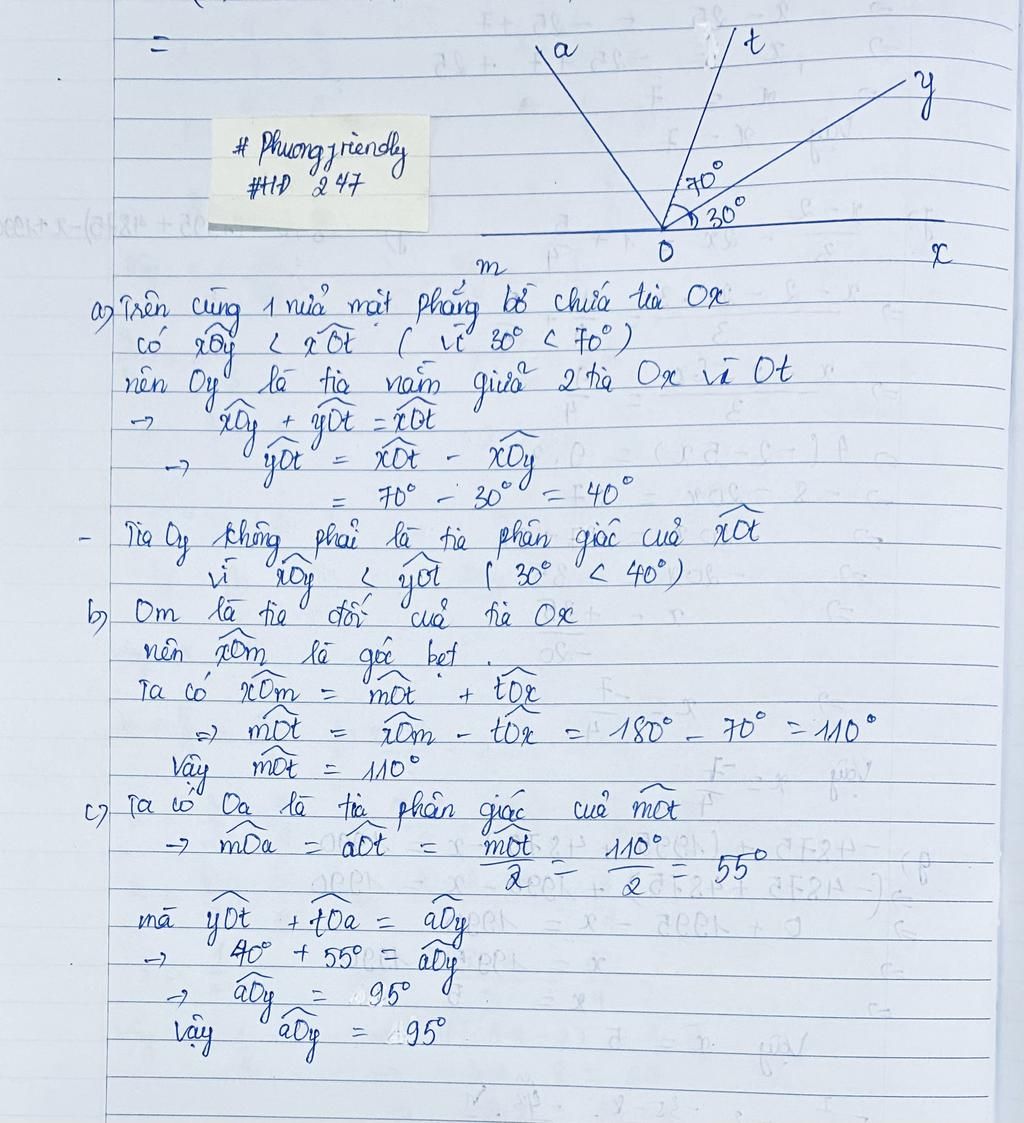 =
a
t
y
# Phuongfriendly
#HD 247
70°
30°
O
x
m
a) Trên cùng 1 nửa mặt phẳng bờ chứa tia Ox
có xOy < xOt ( vì 30° < 70°)
nên Oy là tia nằm giữa 2 tia Ox và Ot
→ xOy + yOt = xOt
→ yOt = xOt - xOy
= 70° - 30° = 40°
- Tia Oy không phải là tia phân giác của xOt
vì xOy < yOt ( 30° < 40°)
b) Om là tia đối của tia Ox
nên xOm là góc bẹt .
Ta có xOm = mOt + tOx
=> mOt = xOm - tOx = 180° - 70° = 110°
Vậy mOt = 110°
c) Ta có Oa là tia phân giác của mOt
→ mOa = aOt = mOt/2 = 110°/2 = 55°
mà yOt + tOa = aOy
→ 40° + 55° = aOy
→ aOy = 95°
Vậy aOy = 95°